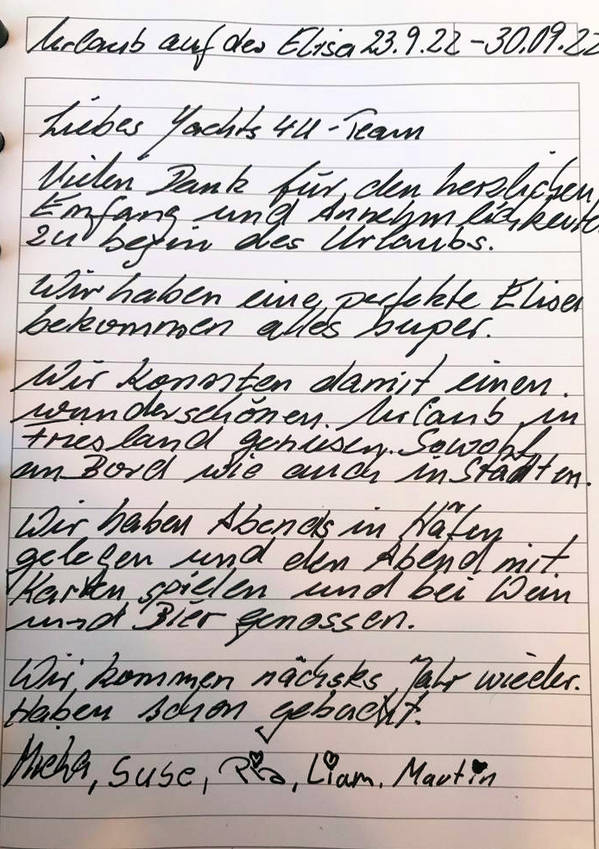 Urlaub auf der Elisa 23.9.22 - 30.09.22
Liebes Yachts 4U - Team
Vielen Dank für den herzlichen
Empfang und Annehmlichkeiten
zu begin des Urlaubs.
Wir haben eine perfekte Elisa
bekommen alles super.
Wir konnten damit einen
wunderschönen Urlaub in
Friesland geniesen. Sowohl
an Bord wie auch in Städten.
Wir haben Abends in Häfen
gelegen und den Abend mit
Karten spielen und bei Wein
und Bier genossen.
Wir kommen nächstes Jahr wieder.
Haben schon gebucht.
Micha, Suse, Pia, Liam, Martin